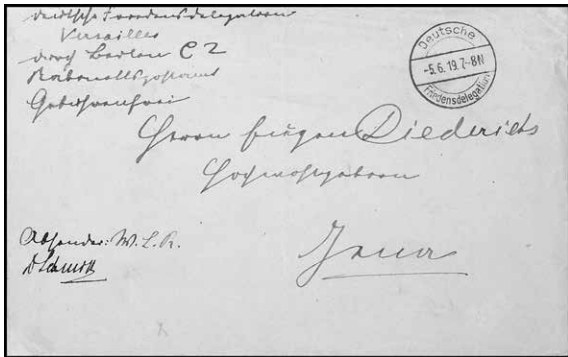 Deutsche Friedensdelegation
Versailles
durch Berlin C 2
Gebührenfrei
Deutsche
-5.6.19.7-8N
Friedensdelegation
Herrn Eugen Diederichs
Hochwohlgeboren
Jena
Absender: W. L. R.
D Schmitt